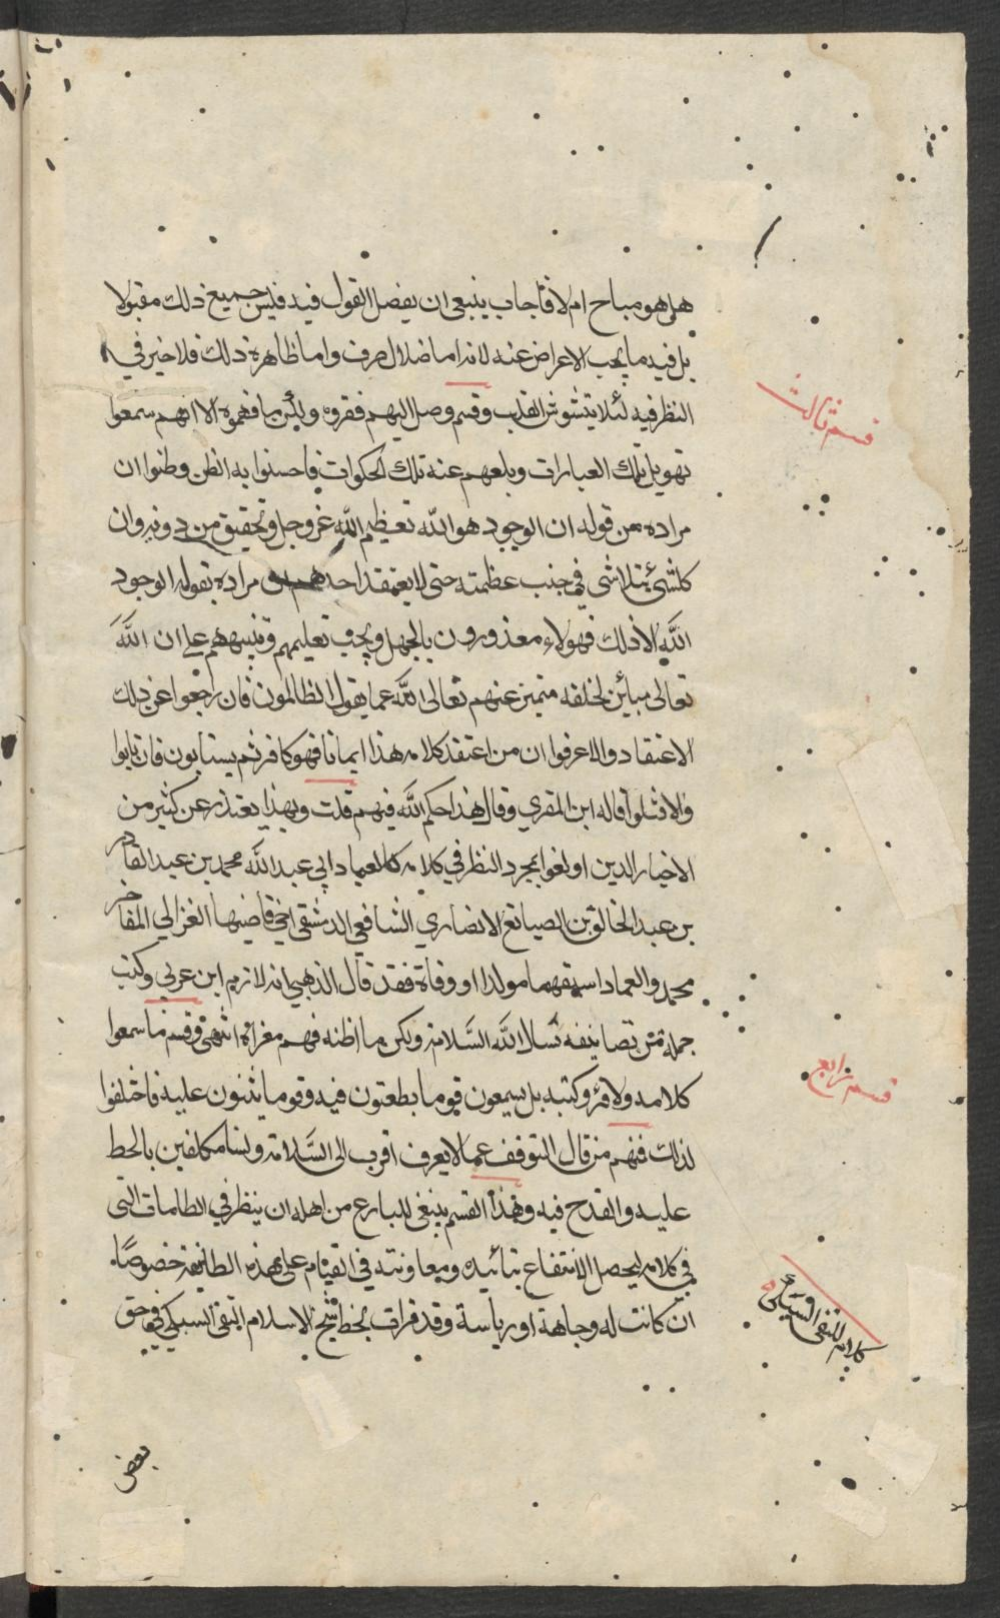 هل هو مباح ام لا فاجاب ينبغي ان يفصل القول فيه فليس جميع ذلك مقبولا
بل فيه ما يجب الاعراض عنه لانه اما ضلال صرف واما ظاهره ذلك فلا خير في
النظر فيه لئلا يتشوش القلب وقسم وصل اليهم فقروه ولكن ما فهموه الا انهم سمعوا
قسم ثالث
تهويل تلك العبارات وبلغهم عنه تلك الحكوات فاحسنوا به الظن وظنوا ان
مراده من قوله ان الوجود هو الله تعظيم الله عز وجل وتحقيق من دونه وان
كل شئ يتلاشى في جنب عظمته حتى لا يعتقد احدهم مراده بقوله الوجود
الله الا ذلك فهولاء معذورون بالجهل ويجب تعليمهم وتنبيههم على ان الله
تعالى مبائن لخلقه متميز عنهم تعالى الله عما يقول الظالمون فان راجعوا عن ذلك
الاعتقاد والا عرفوا ان من اعتقد كلامه هذا ايمانا فهو كافر ثم يستتابون فان تابوا
والا قتلوا قاله ابن المقري وقال هذا حكم الله فيهم قلت وبهذا يعتذر عن كثير من
الاخيار الذين اولعوا بمجرد النظر في كلامه كالعماد ابي عبد الله محمد بن عبد القادر
بن عبد الخالق بن الصايغ الانصاري الشافعي الدمشقي اخي قاضيها الغزالي المفاخر
محمد والعماد اسبقهما مولدا او وفاة فقد قال الذهبي انه لازم ابن عربي وكتب
جملة من تصانيفه نسال الله السلامة ولكن ما اظنه فهم مغزاه انتهى وقسم ما سمعوا
كلامه ولا قرو كتبه بل يسمعون قوما يطعنون فيه وقوما يثنون عليه فاختلفوا
قسم رابع
لذلك فمنهم من قال التوقف عما لا يعرف اقرب الى السلامة ولسنا مكلفين بالحط
عليه والقدح فيه وهذا القسم ينبغي للبارع من اهله ان ينظر في الطامات التي
في كلامه ليحصل الانتفاع بتائيده ومعاونته في القيام على هذه الطائفة خصوصا
ان كانت له وجاهة او رياسة وقد قرات بخط شيخ الاسلام التقي السبكي في حق
كلام للتقي السبكي
بعض